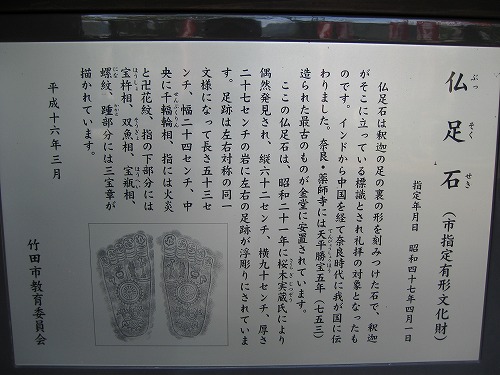 仏足石（市指定有形文化財）
ぶっ そく せき
指定年月日　昭和四十七年四月一日
仏足石は釈迦の足の裏の形を刻みつけた石で、釈迦
がそこに立っている標識とされ礼拝の対象となったも
のです。インドから中国を経て奈良時代に我が国に伝
わりました。奈良・薬師寺には天平勝宝五年（七五三）
造られた最古のものが金堂に安置されています。
ここの仏足石は、昭和二十一年に桜木実蔵氏により
偶然発見され、縦六十二センチ、横九十センチ、厚さ
二十七センチの岩に左右の足跡が浮彫りにされていま
す。足跡は左右対称の同一
文様になって長さ五十三セ
ンチ、幅二十四センチ、中
央に千輻輪相、指には火炎
と卍花紋、指の下部分には
宝杵相、双魚相、宝瓶相、
螺紋、踵部分には三宝章が
描かれています。
平成十六年三月
竹田市教育委員会